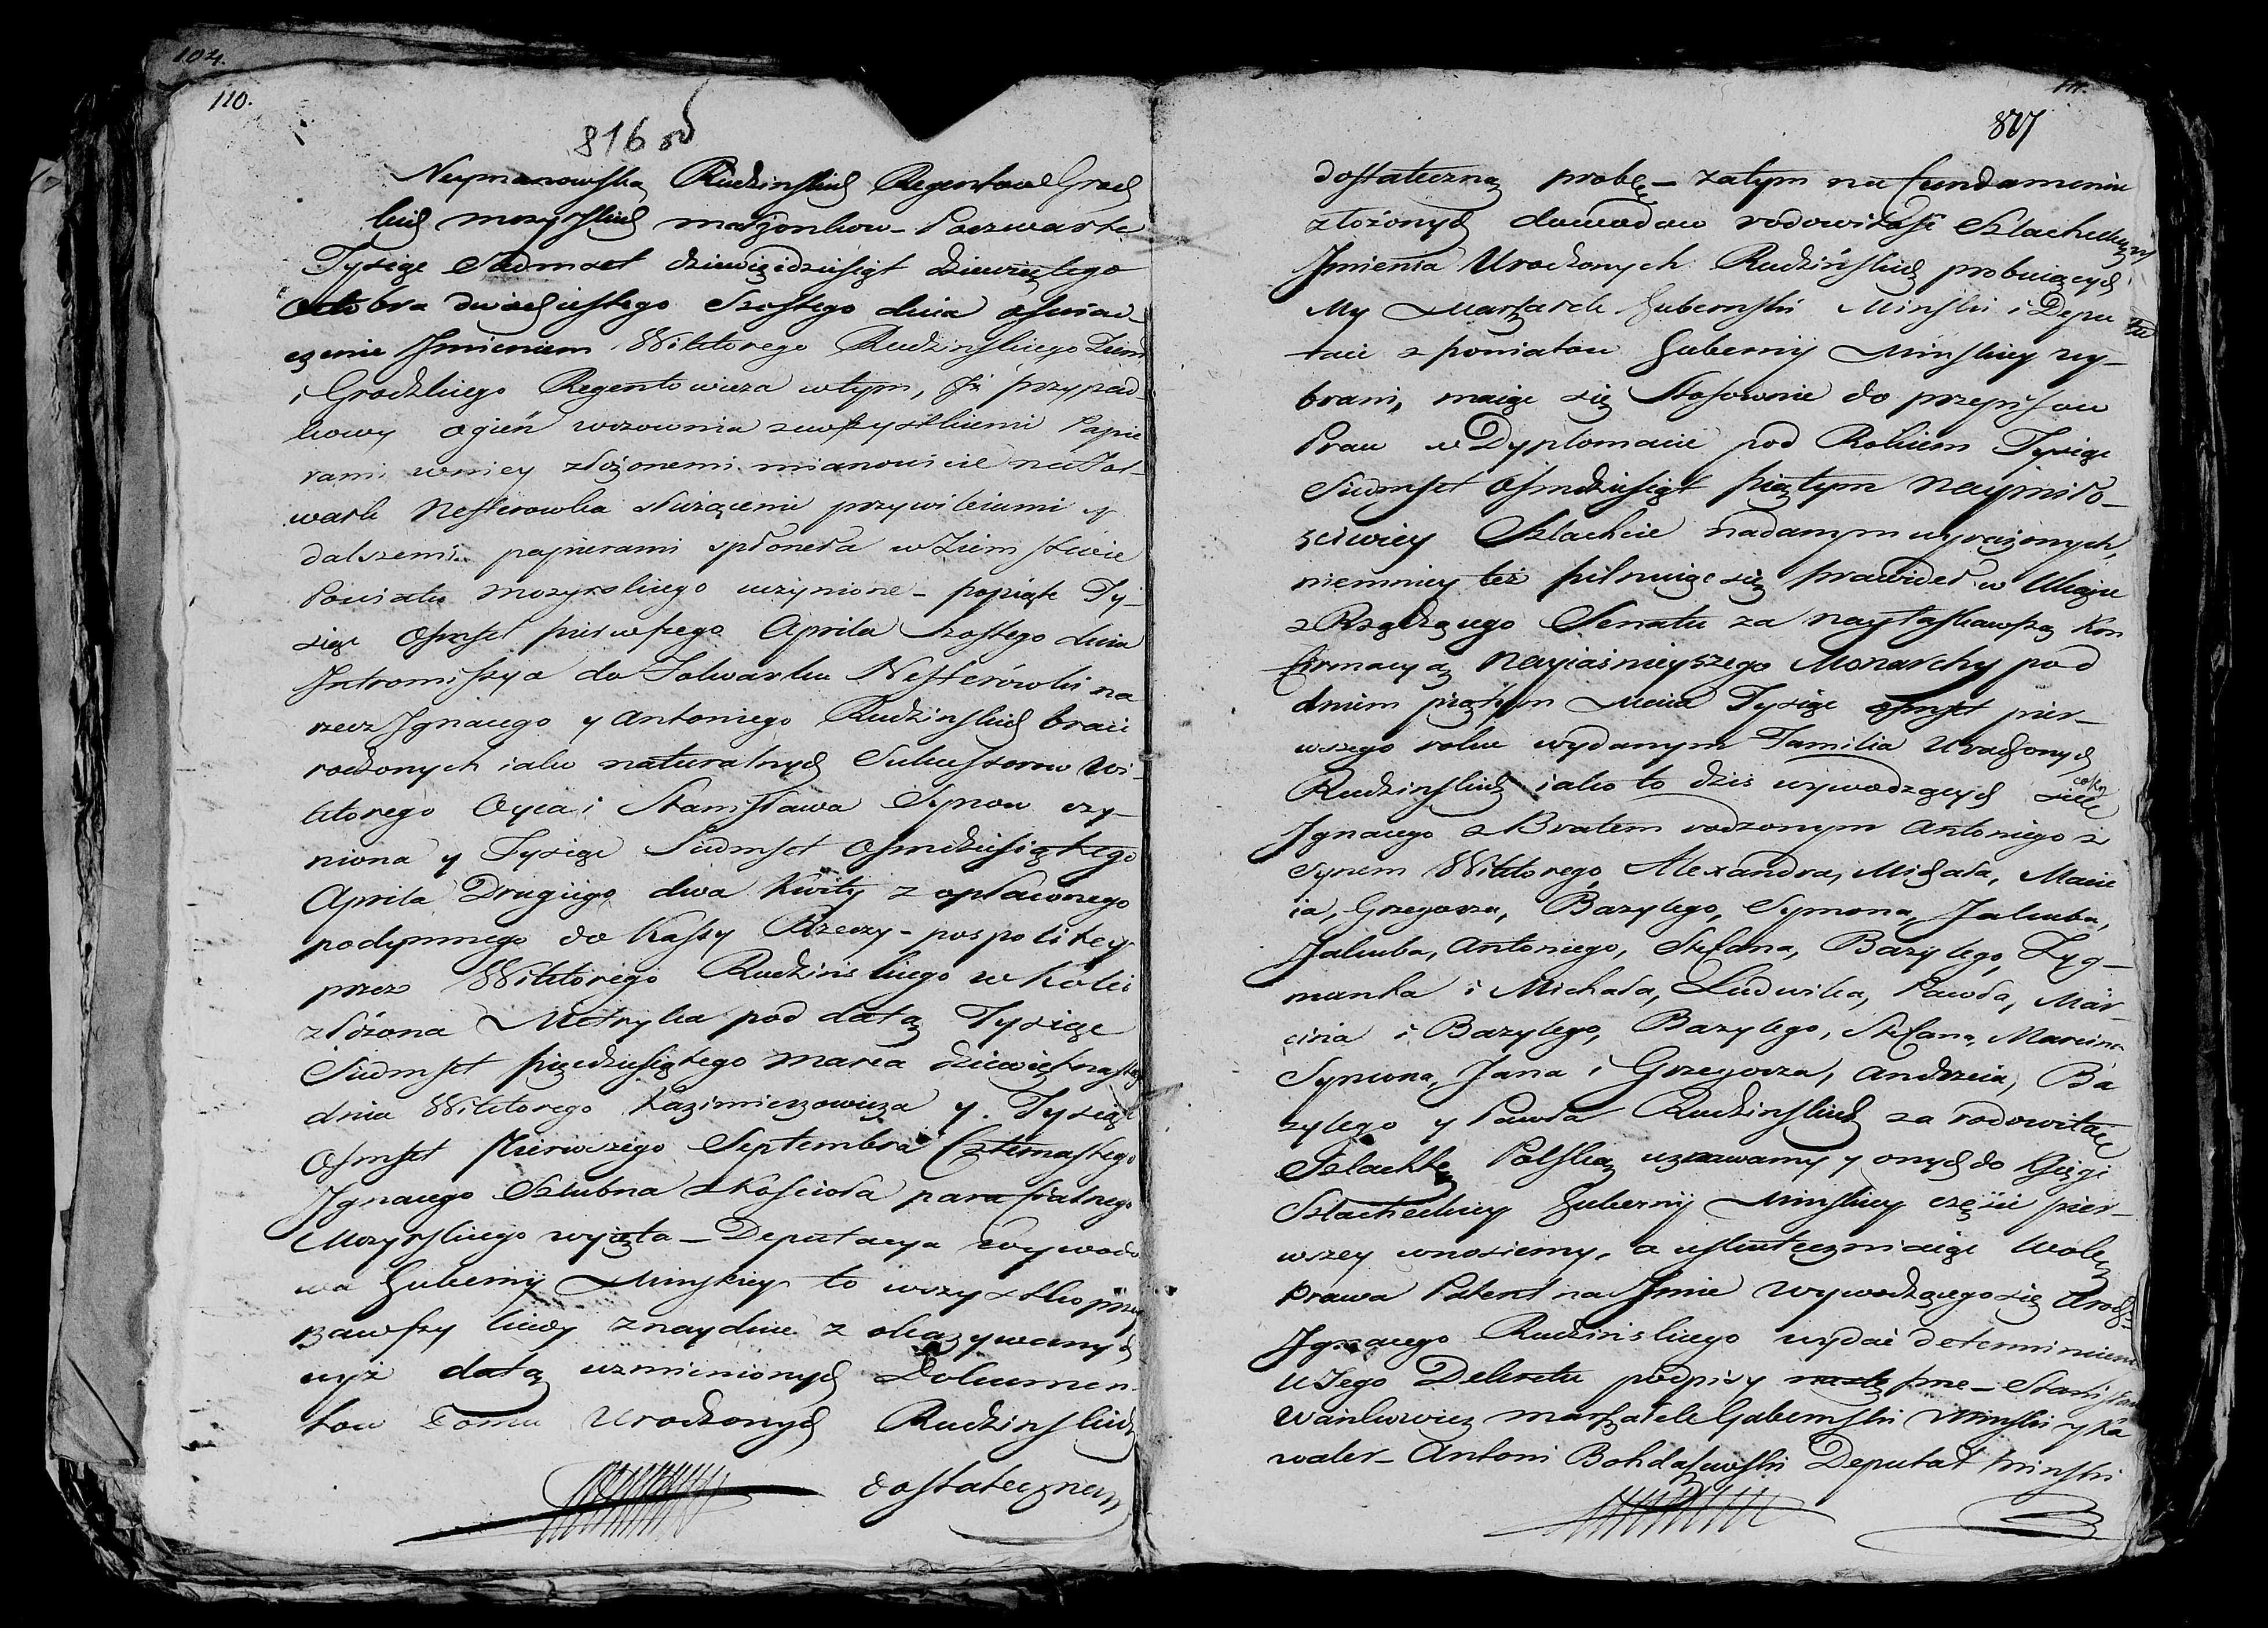 104.
110.
816 od
Neymanowską Rudzinskich Regentow Grodz
kich mozyrskich małżonkow – Poczwarte
Tysiąc Siedmset dziewięćdziesiąt dziewiątego
Oktobra dwudziestego Szostego dnia oswiad-
czenie Imieniem Wiktorego Rudzinskiego Ziem
i Grodzkiego Regentowicza wtym, Jż przypad-
kowy ogień wozownia zwszystkiemi Papie
rami wniey złożonemi mianowicie na Fol-
wark Nesterowka służącemi przywileiami y
dalszemi papierami spłoneła w Ziemstwie
Powiatu Mozyrskiego uczynione – popiąte Ty-
siąc Osmset pierwszego Aprila Szostego dnia
Intromissya do Folwarku Nesterówki na
rzecz Ignacego y Antoniego Rudzinskich braci
rodzonych iako naturalnych Sukcessorow Wi-
ktorego Oyca i Stanisława Synow czy-
niona y Tysiąc Siedmset Osmdziesiątkego
Aprila Drugiego dwa Kwity z opłaconego
podymnego do Kassy Rzeczy-pospolitey
przez Wiktorego Rudzinskiego w kolei
złożona Metryka pod datą Tysiąc
Siedmset pięcdziesiątego marca dziewiętnastego
dnia Wiktorego Kazimierzowicza y. Tysiąc
Osmset Pierwszego Septembra Czternastego
Ignacego Szlubna z Kościoła parafialnego
Mozyrskiego wyięta – Deputacya wywodo
wa Gubernij Minskiey to wszystko przey
rzawszy kiedy znayduie z okazywanych
wyż datą wzmienionych Dokumen
tow Domu Urodzonych Rudzinskich
dostateczną
111.
817
dostateczną probę – zatym na fundamencie
złożonych dowodow rodowitość Szlachecką
Imienia Urodzonych Rudzińskich probuiących
My Marszałek Gubernski Minski i Depu
taci z poniatow Gubernij Minskiey wy-
brani, maiąc się Stosownie do przepisow
Praw w Dyplomacie pod Rokiem Tysiąc
Siedmset Osmdziesiąt piątym Naymiło-
sciwiey Szlachcie nadanym wyrażonych,
niemniey też pilnuiąc się prawideł w Ukazie
z Rządzącego Senatu za nayłaskawszą Kon
firmacyą Nayiasnieyszego Monarchy pod
dniem piątym Maia Tysiąc Osmset pier-
wszego roku wydanym Familia Urodzonych
Rudzinskich iako to dzis wywodzących się
Ignacego z Bratem rodzonym Antoniego z
Synem Wiktorego, Alexandra, Michała, Macie
ia, Grzegorza, Bazylego, Symona, Jakuba,
Jakuba, Antoniego, Stefana, Bazylego, Zyg-
munta i Michała, Ludwika, Pawła, Mar-
cina i Bazylego, Bazylego, Stefana, Marcina
Symona, Jana i Grzegorza, Andrzeia, Ba
zylego y Pawła Rudzinskich za rodowitą
Szlachtę Polską uznawamy y onych do Księgi
Szlacheckiey Gubernij Minskiey części pier-
wszey wnosiemy, a uskuteczniaiąc Wolę
Prawa Patent na Imie Wywodzącego się Urodz
Ignacego Rudzinskiego wydać determiniem
U Tego Dekretu podpisy nastę pne – Stanisław
Wankowicz marszałek Gubernski Minski y Ka
waler – Antoni Bohdaszewski Deputat Minski